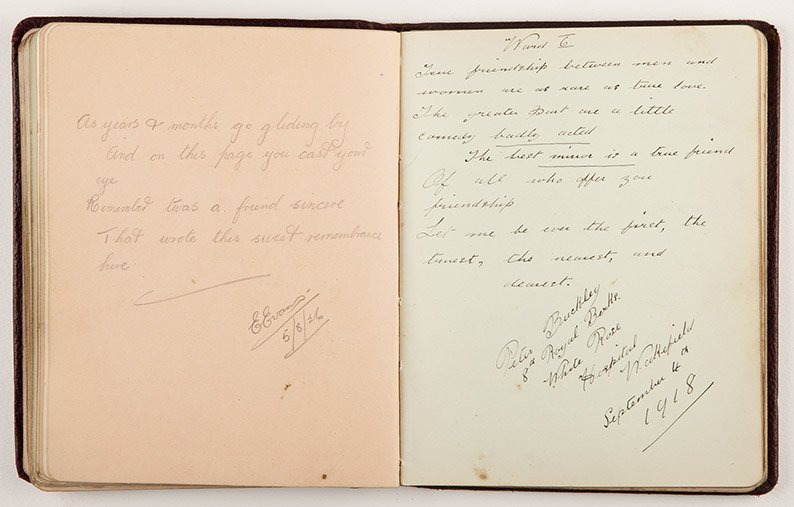 As years & months go gliding by
And on this page you cast your
eye
Remember twas a friend sincere
That wrote this sweet remembrance
here
E Evans.
5/8/26
Ward 6
True friendship between men and
women are as rare as true love.
The greater part are a little
comedy badly acted
The best mirror is a true friend
Of all who offer you
friendship
Let me be ever the first, the
truest, the nearest, and
dearest.
Peter Buckley
8th Royal Berks.
White Rose
Hospital
Wakefield
September 4th
1918